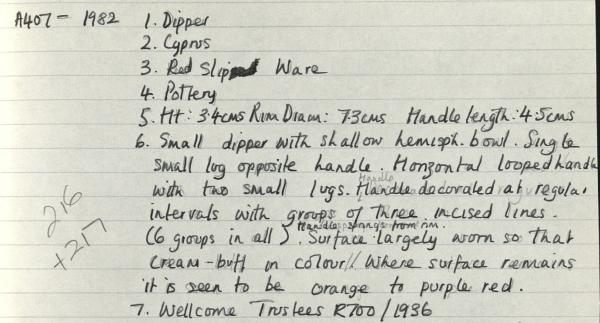 A407 - 1982 1. Dipper
2. Cyprus
3. Red Slip Ware
4. Pottery
5. Ht: 3.4cms Rim Diam: 7.3cms Handle length: 4.5cms
6. Small dipper with shallow hemisph. bowl. Single
small lug opposite handle. Horizontal looped handle
with two small lugs. Handle decorated at regular
intervals with groups of three incised lines.
Handle springs from rim.
(6 groups in all). Surface largely worn so that
cream-buff in colour. Where surface remains
it is seen to be orange to purple red.
7. Wellcome Trustees R700/1936
216
+217